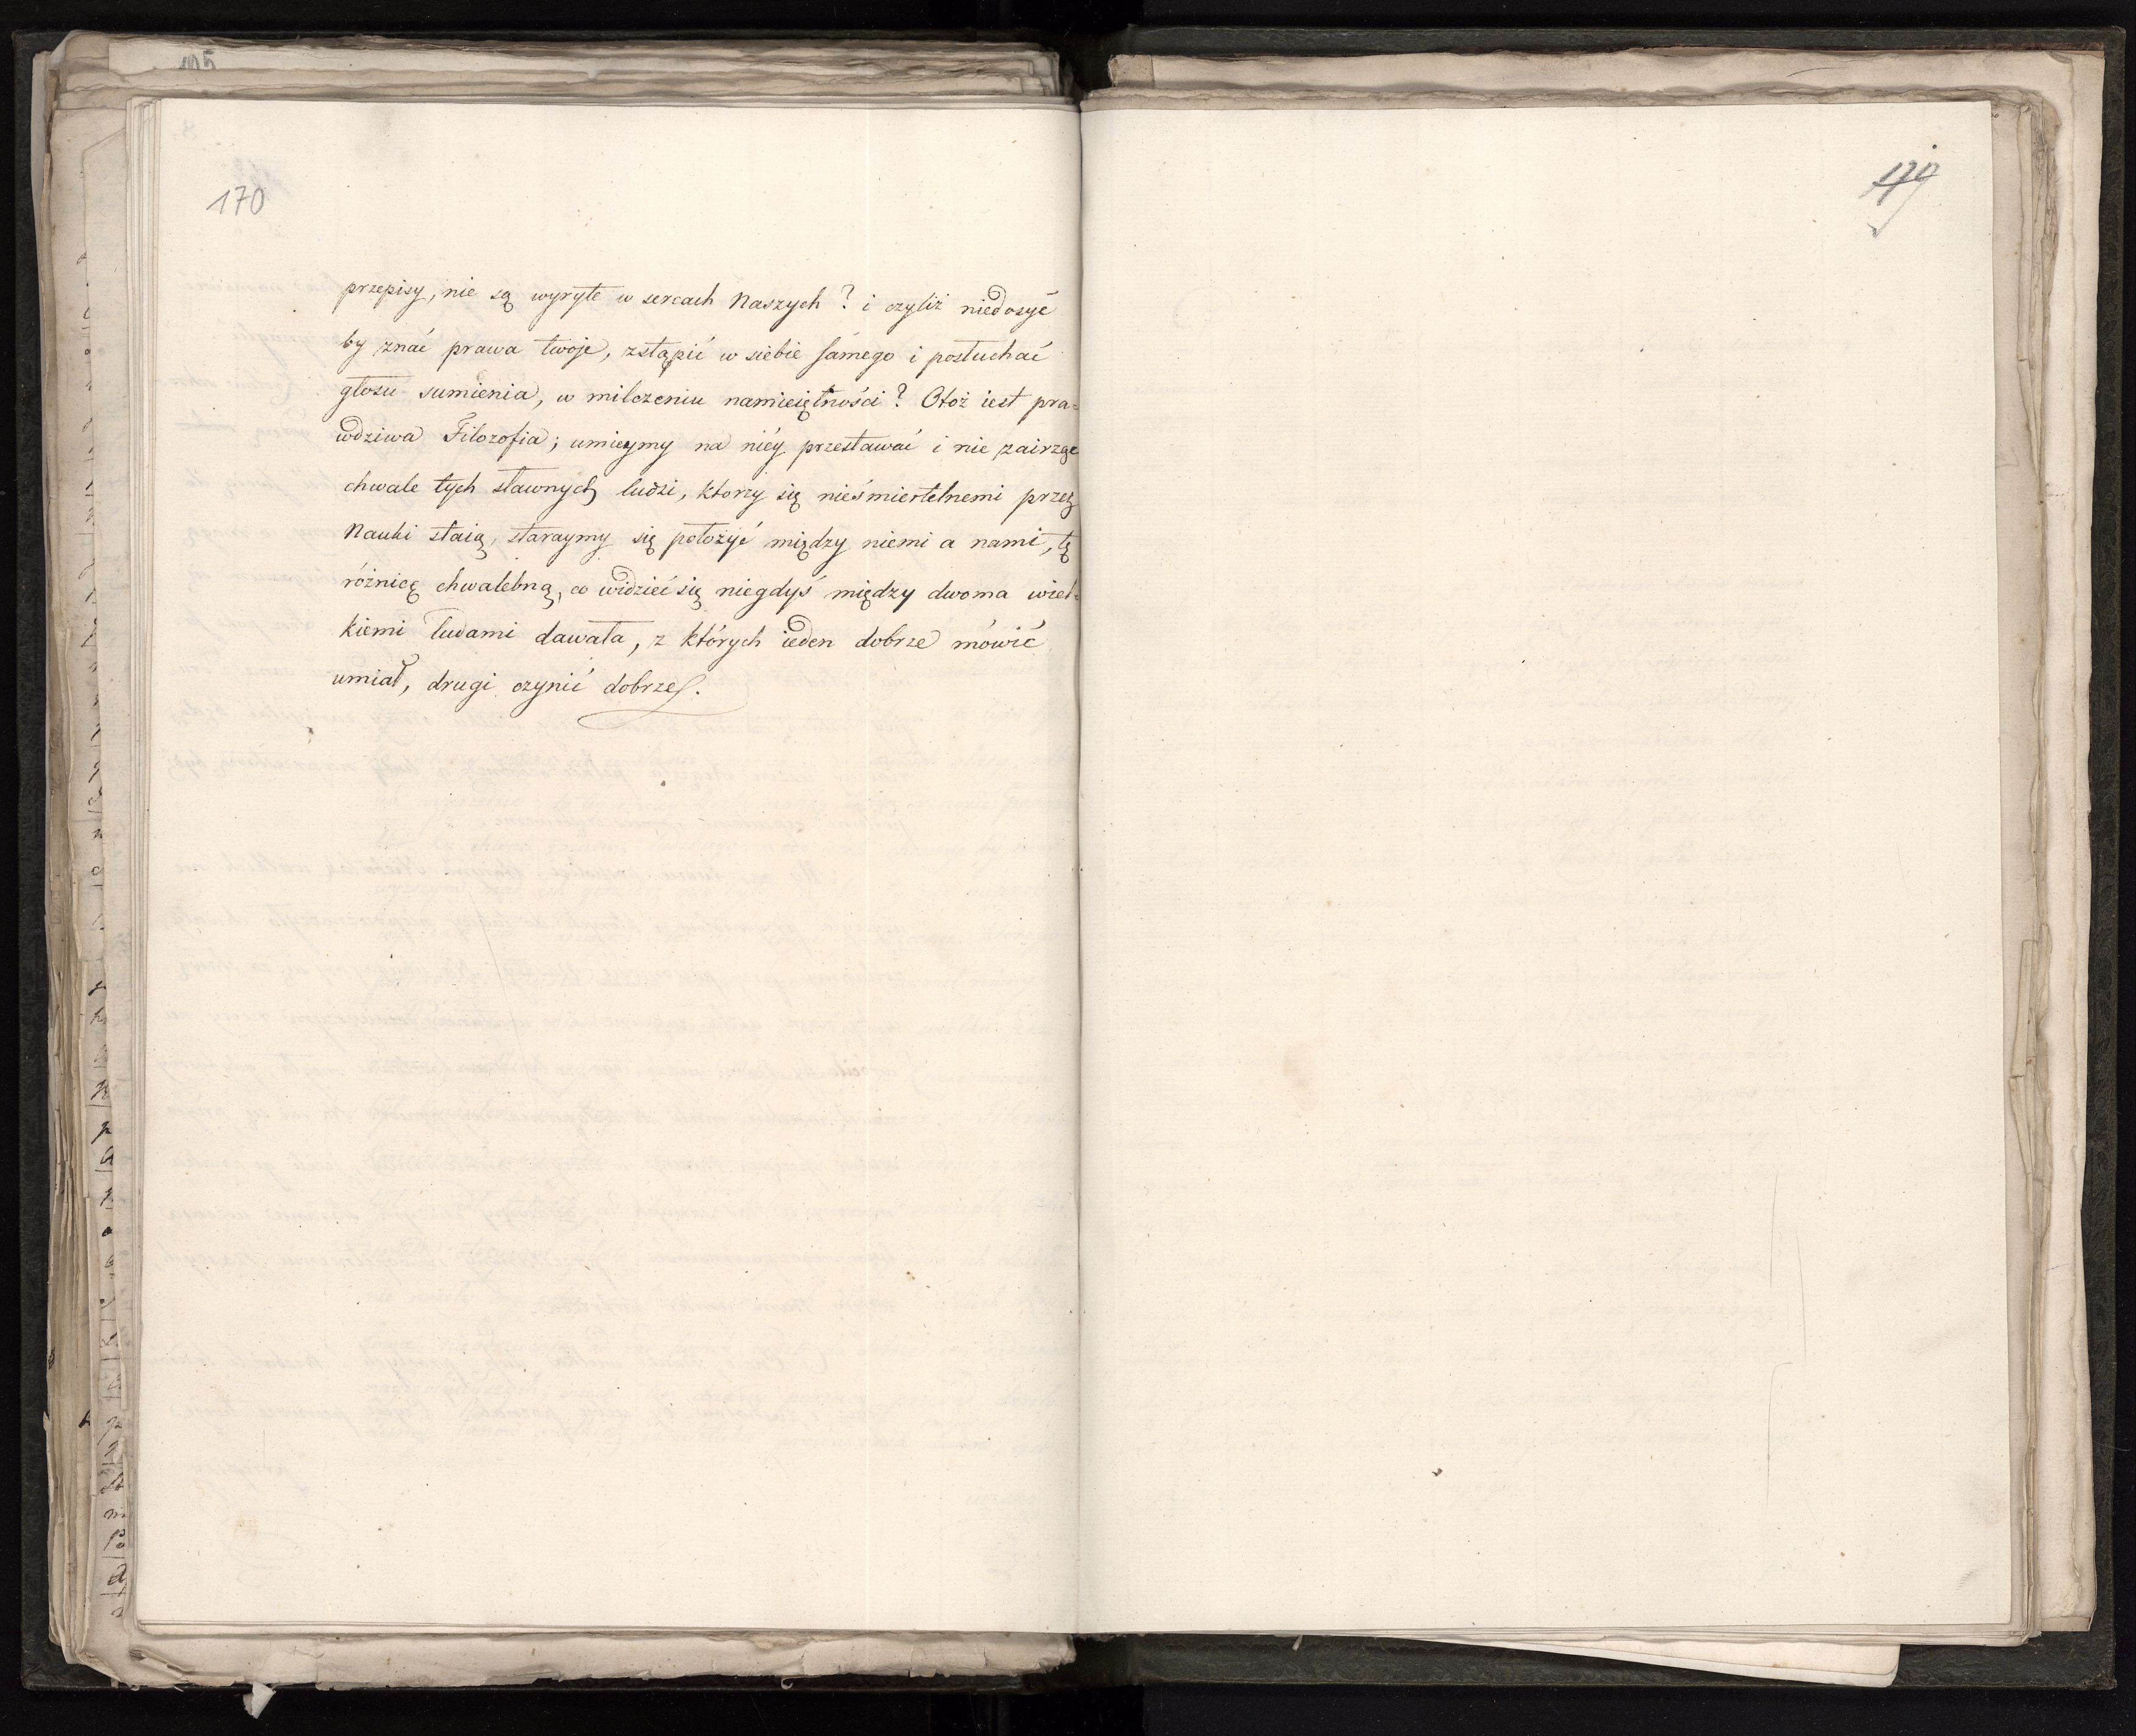 105
170
przepisy, nie są wyryte w sercach Naszych? i czyliż niedosyć
by znać prawa twoje, zstąpić w siebie samego i posłuchać
głosu sumienia, w milczeniu namiciętności? Otoż iest pra=
wdziwa Filozofia; umieymy na niéy przestawać i nie zairząc
chwale tych sławnych ludzi, ktorzy się nieśmiertelnemi przez
Nauki staią, staraymy się położyć między niemi a nami, tę
różnicę chwalebną, co widzieć się niegdyś między dwoma wiel=
kiemi ludami dawała, z których ieden dobrze mówić
umiał, drugi czynić dobrze.